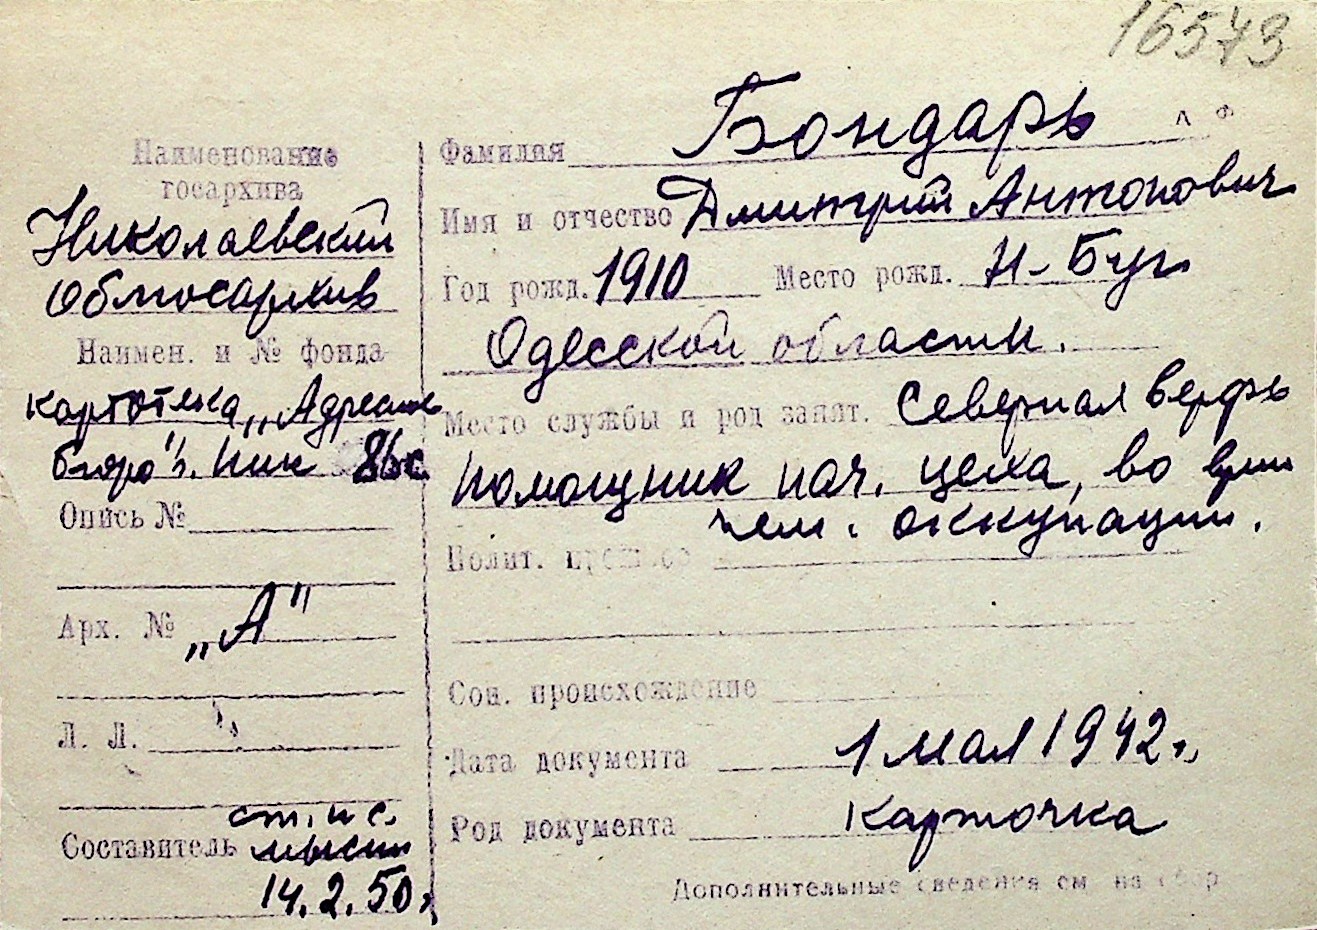 16573
Наименование
госархива
Николаевский
Облгосархив
Наимен. и № фонда
картотека „Адресное
бюро". Ник
Опись №
Арх. № „А"
Л. Л.
ст. н с.
Составитель
14.2.50.
Фамилия Бондарь
Имя и отчество Дмитрий Антонович
Год рожд. 1910 Место рожд. Н-Буг
Одесской области.
Место службы и род занят. Северная верфь
помощник нач. цеха, во врем
нем. оккупации.
Полит. прошлое
Соц. происхождение
Дата документа 1 мая 1942 г.
Род документа карточка
Дополнительные сведения см. на обор